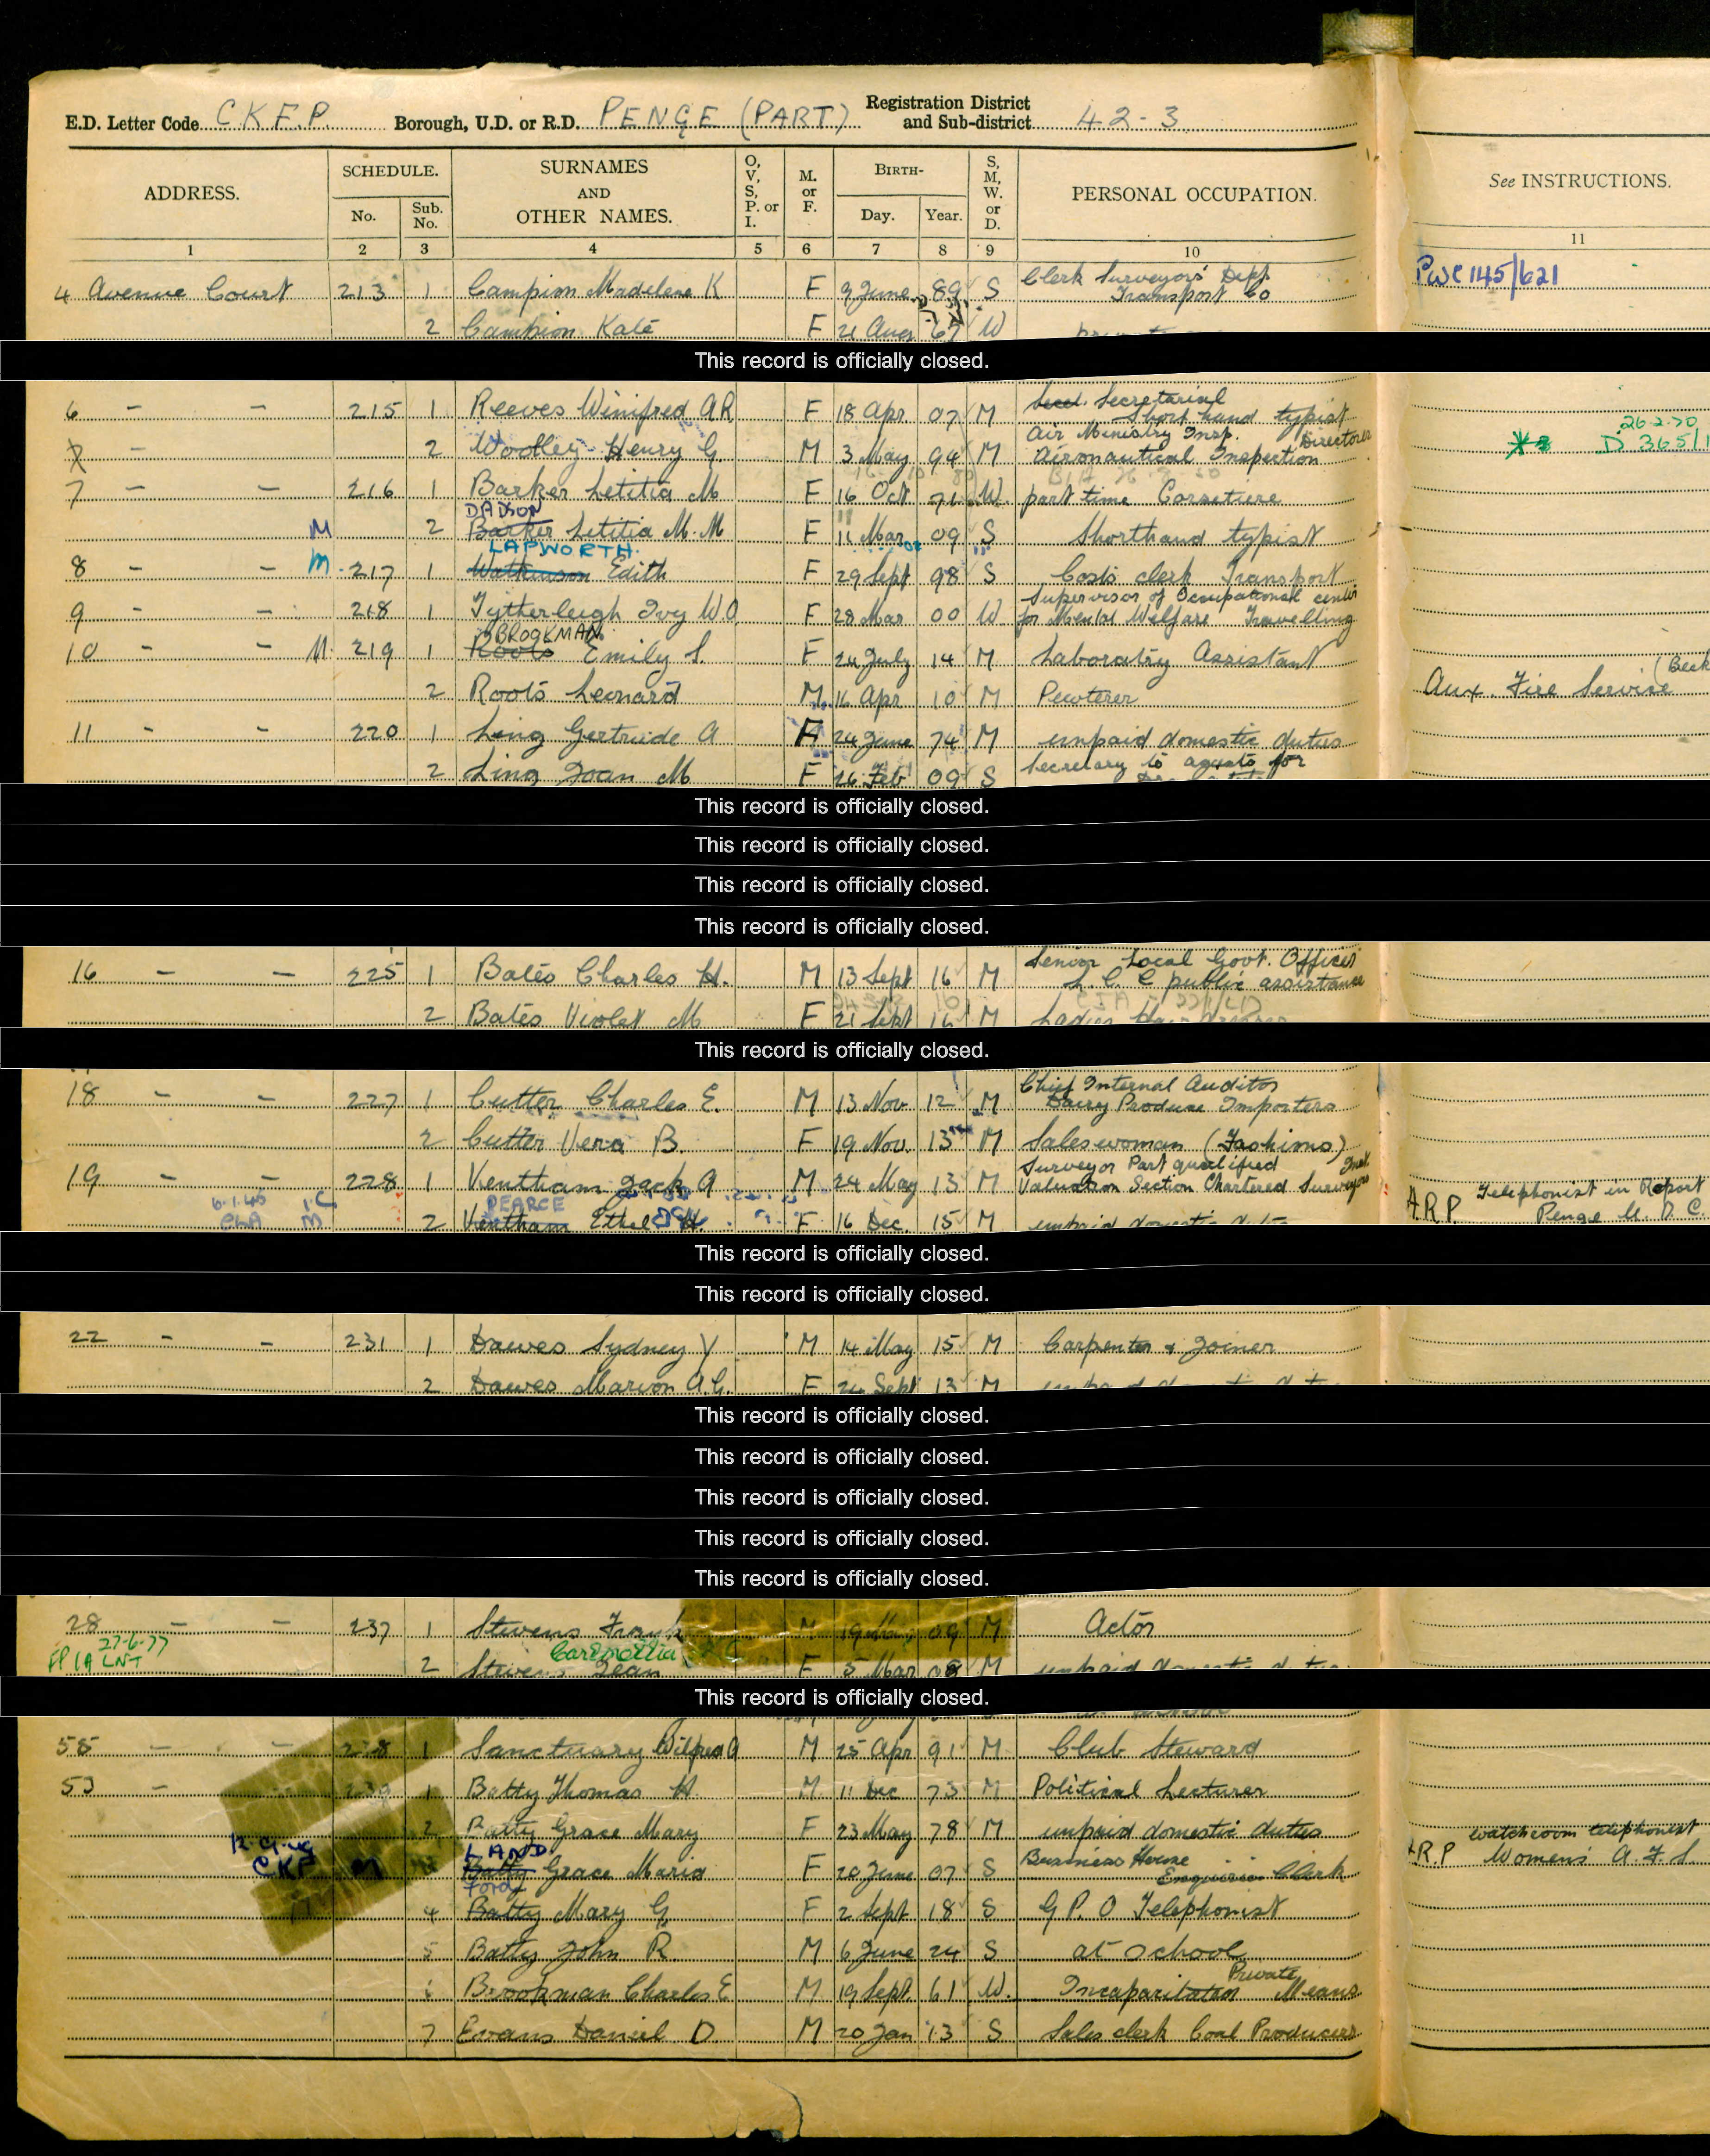 E.D. Letter Code C.K.F.P. Borough, U.D. or R.D. PENGE (PART) Registration District and Sub-district 42-3
ADDRESS. SCHEDULE. No. Sub. No. SURNAMES AND OTHER NAMES. O, V, S, P. or I. M. or F. BIRTH- Day. Year. S, M, W. or D. PERSONAL OCCUPATION. See INSTRUCTIONS.
1 2 3 4 5 6 7 8 9 10 11
4 Avenue Court 213 1 Campion Madelene K F 9 June 89 S Clerk Surveyors' Dept Transport Co PWC 145/621
2 Campion Kate F 21 Aug 67 W
This record is officially closed.
6 - - 215 1 Reeves Winifred A R F 18 Apr 07 M Secretarial Short hand typist
26.2.70
7 - 2 Woolley Henry G. M 3 May 94 M Air Ministry Insp. Directorate Aeronautical Inspection D 365/1
7 - - 216 1 Barker Letitia M F 16 Oct 71 W part time Corsetiere
DADSON
M 2 Barker Letitia M. M F 11 Mar 09 S Shorthand typist
LAPWORTH
8 - - M 217 1 Watkinson Edith F 29 Sept 98 S Costs clerk Transport
9 - - 218 1 Tytherleigh Ivy W O F 28 Mar 00 W Supervisor of Occupational center for Mental Welfare Travelling
BROOKMAN
10 - - M 219 1 Roots Emily S. F 24 July 14 M Laboratry Assistant
2 Roots Leonard M 16 Apr 10 M Pewterer Aux. Fire Service (Beck
11 - - 220 1 Ling Gertrude A F 24 June 74 M unpaid domestic duties
2 Ling Joan M F 26 Feb 09 S Secretary to agents for
This record is officially closed.
This record is officially closed.
This record is officially closed.
This record is officially closed.
16 - - 225 1 Bates Charles H. M 13 Sept 16 M Senior Local Govt. Officer L. C. C public assistance
2 Bates Violet M F 21 Sept 16 M Ladies Hair dresser
This record is officially closed.
18 - - 227 1 Cutter Charles E. M 13 Nov 12 M Chief Internal Auditor Dairy Produce Importers
2 Cutter Vera B. F 19 Nov. 13 M Saleswoman (Fashions)
19 - - 228 1 Ventham Jack A M 24 May 13 M Surveyor Part qualified Valuation Section Chartered Surveyors A.R.P. Telephonist in Report
PEARCE
M 2 Ventham Ethel F 16 Dec 15 M unpaid domestic duties Penge U. D. C.
This record is officially closed.
This record is officially closed.
22 - - 231 1 Dawes Sydney V M 14 May 15 M Carpenter & Joiner
2 Dawes Marion A.G. F 24 Sept 13 M
This record is officially closed.
This record is officially closed.
This record is officially closed.
This record is officially closed.
This record is officially closed.
28 - - 237 1 Stevens Frank M 19 May 09 M Actor
27-6-77
2 Stevens Jean F 5 Mar 08 M unpaid domestic duties
This record is officially closed.
55 - - 238 1 Sanctuary Wilfred A M 25 Apr 91 M Club Steward
53 - - 239 1 Batty Thomas H M 11 Dec 73 M Political Lecturer
2 Batty Grace Mary F 23 May 78 M unpaid domestic duties
LAND
CKF M Batty Grace Maria F 20 June 07 S Business House Enquiries Clerk A.R.P Watchroom telephonist Womens A. F. S.
Ford
4 Batty Mary G. F 2 Sept 18 S G P. O Telephonist
5 Batty John R. M 6 June 24 S at School
6 Brookman Charles E M 19 Sept. 61 W. Incapacitated Private Means
7 Evans Daniel D M 20 Jan 13 S Sales clerk Coal Producers